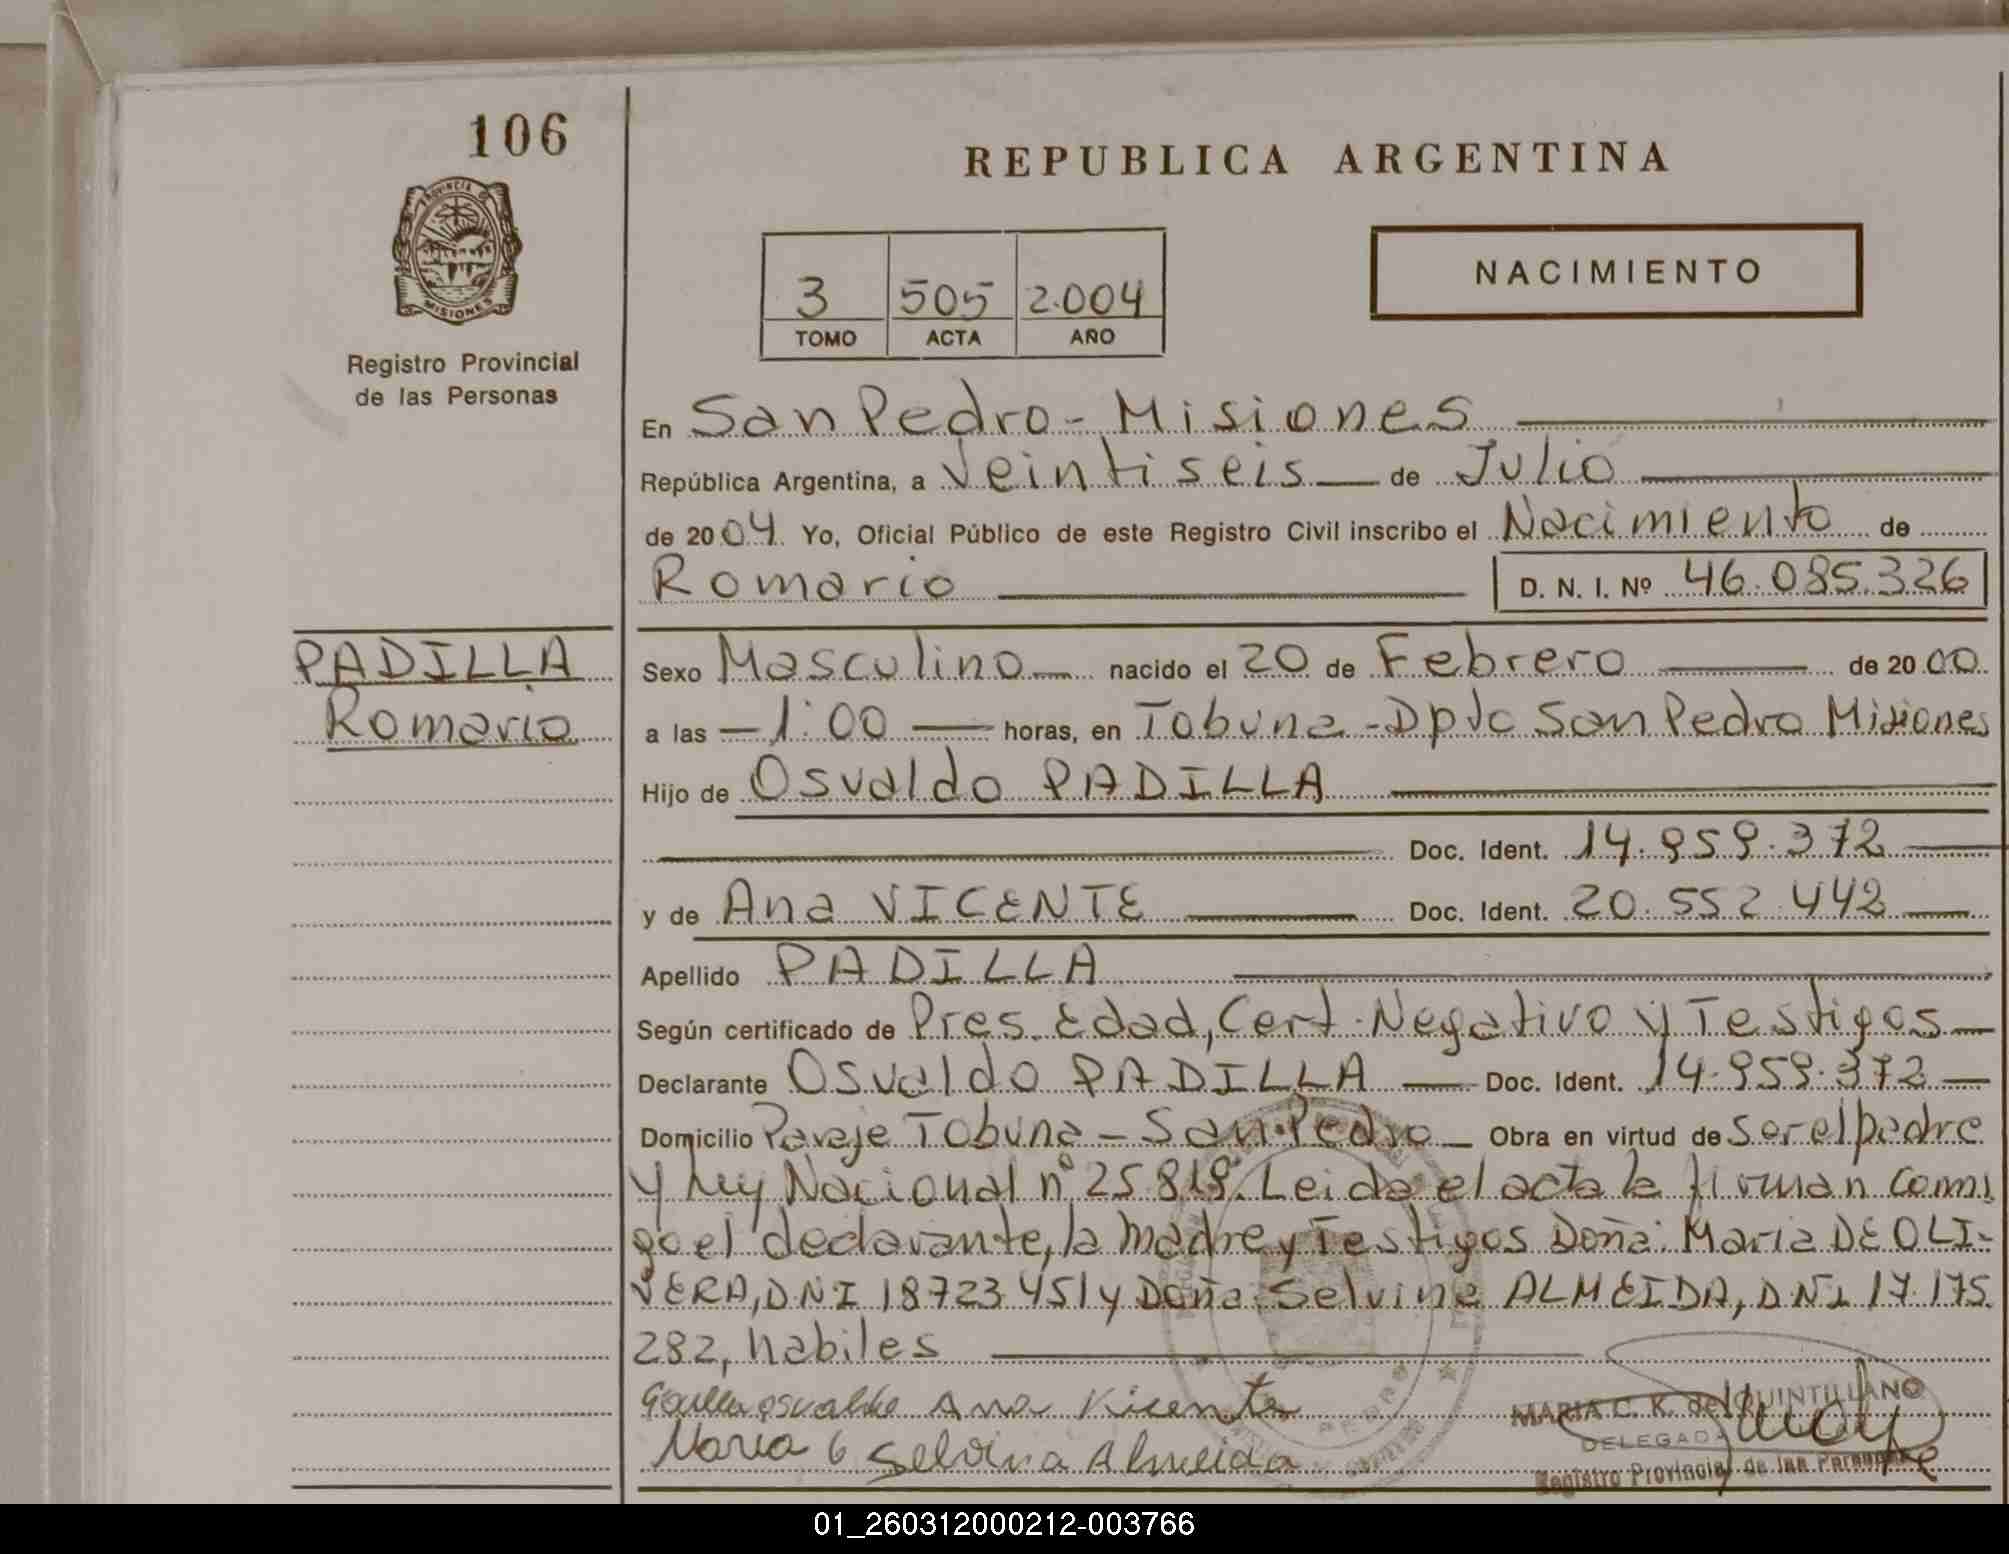 106
REPUBLICA ARGENTINA
PROVINCIA DE
MISIONES
3 505 2.004
TOMO ACTA AÑO
NACIMIENTO
Registro Provincial
de las Personas
En San Pedro - Misiones
República Argentina, a Veintiseis de Julio
de 2004 Yo, Oficial Público de este Registro Civil inscribo el Nacimiento de
Romario D. N. I. Nº 46.085.326
PADILLA
Romario
Sexo Masculino nacido el 20 de Febrero de 2000
a las 1:00 horas, en Tobuna - Dpto San Pedro Misiones
Hijo de Osvaldo PADILLA
Doc. Ident. 14.959.372
y de Ana VICENTE Doc. Ident. 20.552.442
Apellido PADILLA
Según certificado de Pres. Edad, Cert. Negativo y Testigos
Declarante Osvaldo PADILLA Doc. Ident. 14.959.372
Domicilio Paraje Tobuna - San Pedro Obra en virtud de ser el padre
y Ley Nacional nº 25.819. Leida el acta la firman conmi
go el declarante, la madre y Testigos Doña: Maria DE OLI-
VERA, D.N.I 18723451 y Doña: Selvina ALMEIDA, D.N.I 17.175.
282, habiles
Ana Vicente
Maria Selvina Almeida
MARIA C. K. de QUINTILLANO
DELEGADA
Registro Provincial de las Personas
01_260312000212-003766